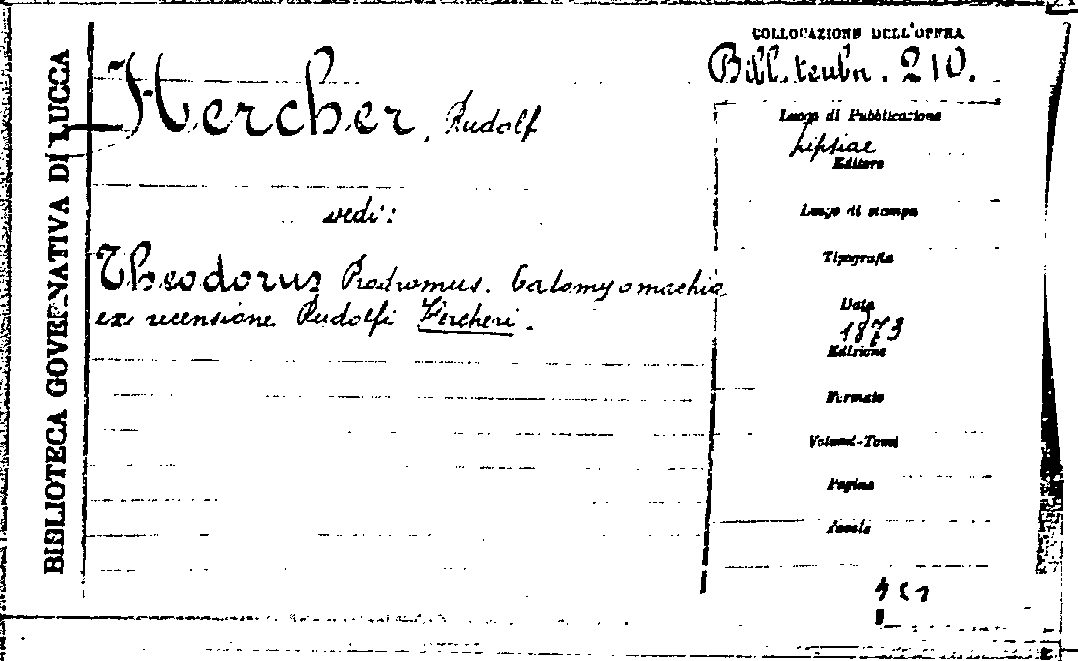 BIBLIOTECA GOVERNATIVA DI LUCCA
Hercher, Rudolf
vedi:
Theodorus Prodromus. Catomyomachia
ex recensione Rudolfi Hercheri.
COLLOCAZIONE DELL'OPERA
Bibl. teubn. 210.
Luogo di Pubblicazione
Lipsiae
Editore
Luogo di stampa
Tipografia
Data
1873
Edizione
Formato
Volumi-Tomi
Pagine
Tavole